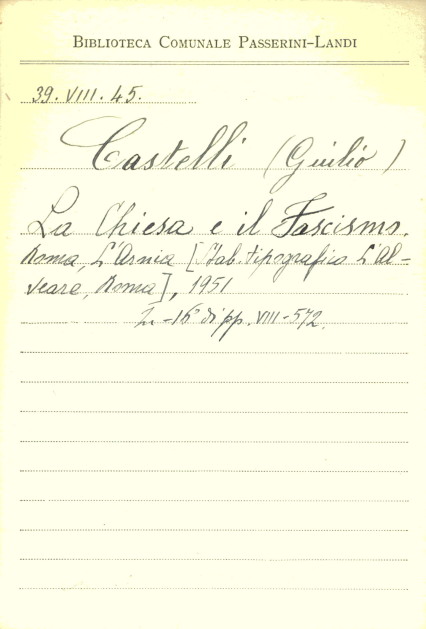 BIBLIOTECA COMUNALE PASSERINI-LANDI
39. VIII. 45.
Castelli (Giulio)
La Chiesa e il Fascismo.
Roma, L'Arnia [Stab. tipografico L'Al-
veare, Roma], 1951
In-16° di pp. VIII-572.